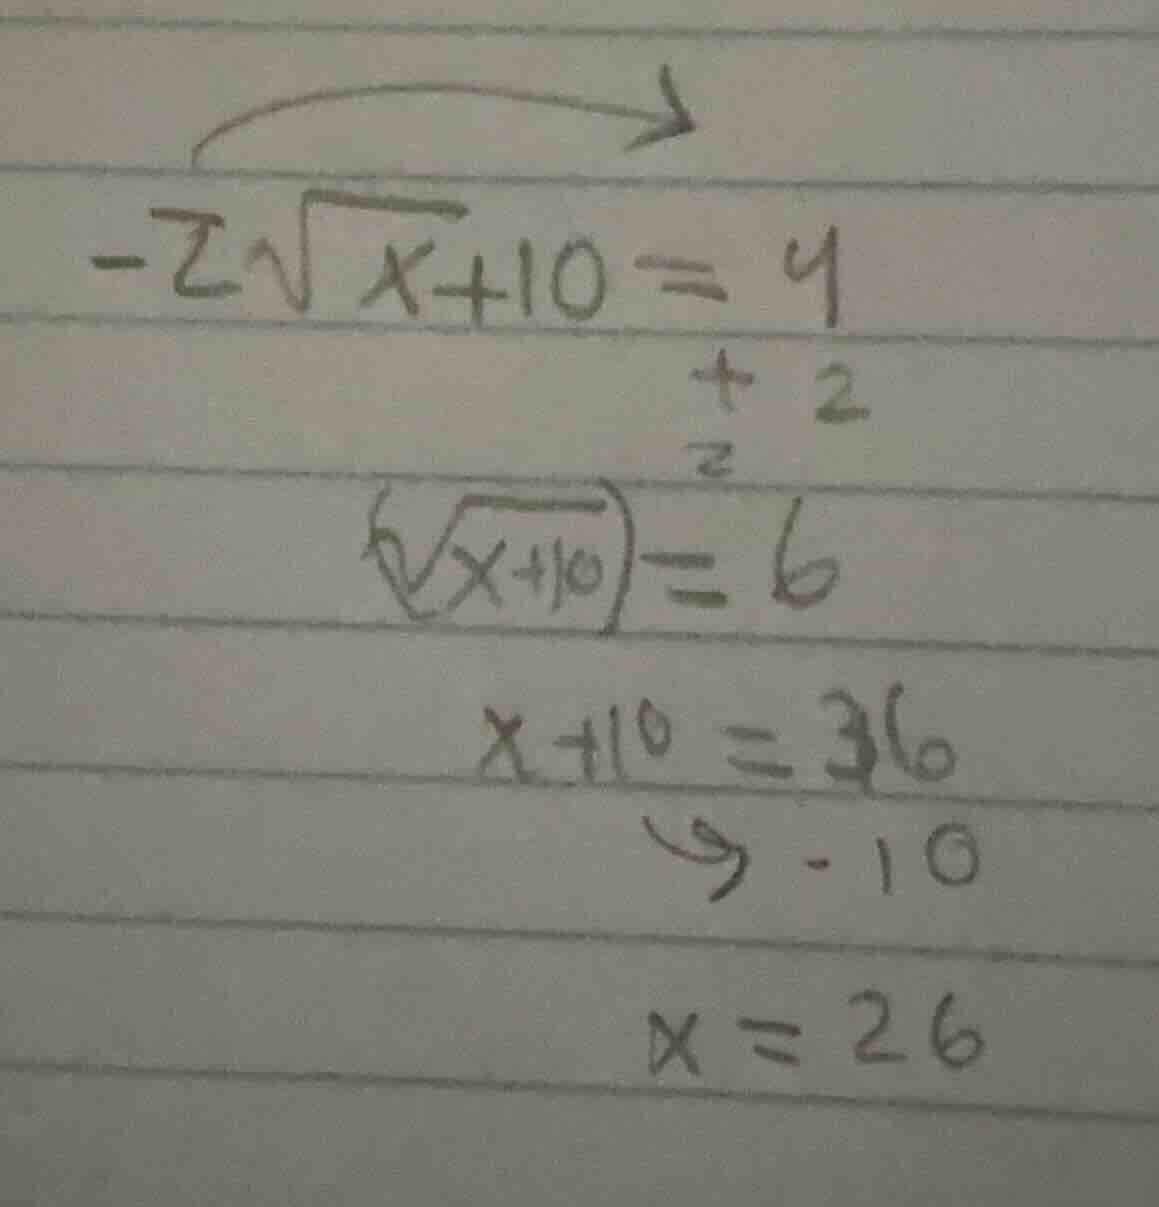 -2√x+10 = 4
+ 2
2
(√x+10) = 6
x+10 = 36
- 10
x = 26